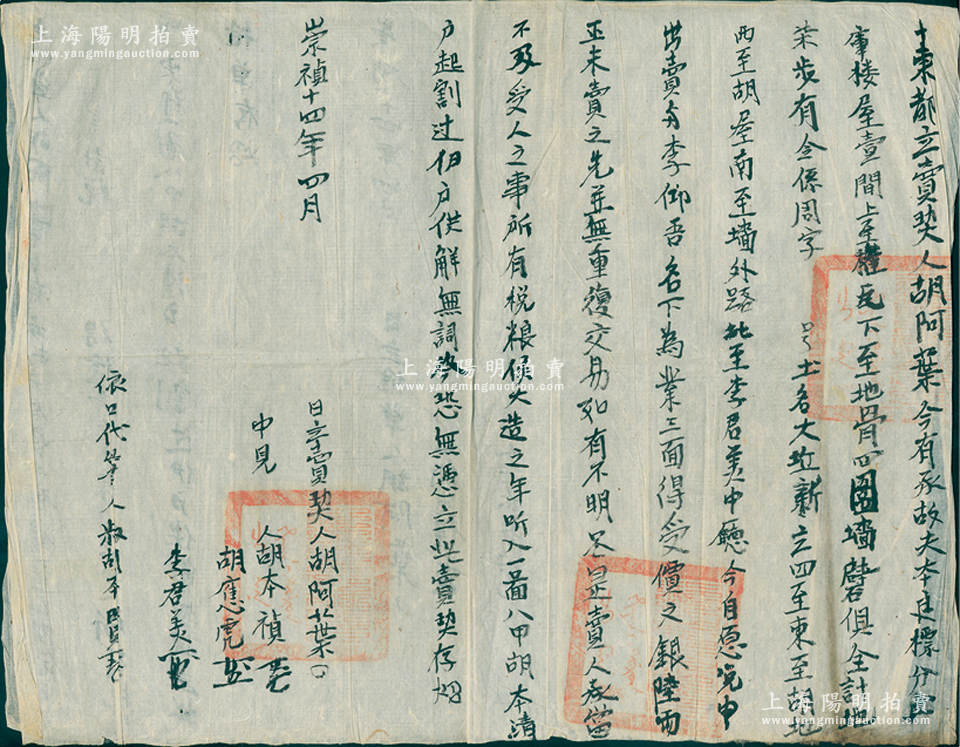 十東都立賣契人胡阿葉今有承故夫本主標分
庫楼屋壹間上至椽瓦下至地骨四圍墻壁俱全計地
柒步有余係周字 号土名大坵新立四至東至胡地
西至胡屋南至墻外路北至李君美中廳今自愿凂中
出賣与李仰吾名下為業三面得受價之銀陸両
正未賣之先並無重復交易如有不明尽是賣人承當
不及受人之事所有税粮候大造之年听入一畐八甲胡本清
户起割过伯户供解無詞今恐無憑立此賣契存炤
崇禎十四年四月
日立賣契人胡阿葉
中見 人胡本禎
胡應虎
李君美
依口代筆人 胡本
上海陽明拍賣
www.yangmingauction.com
上海陽明拍賣
www.yangmingauction.com
上海陽明拍賣
www.yangmingauction.com